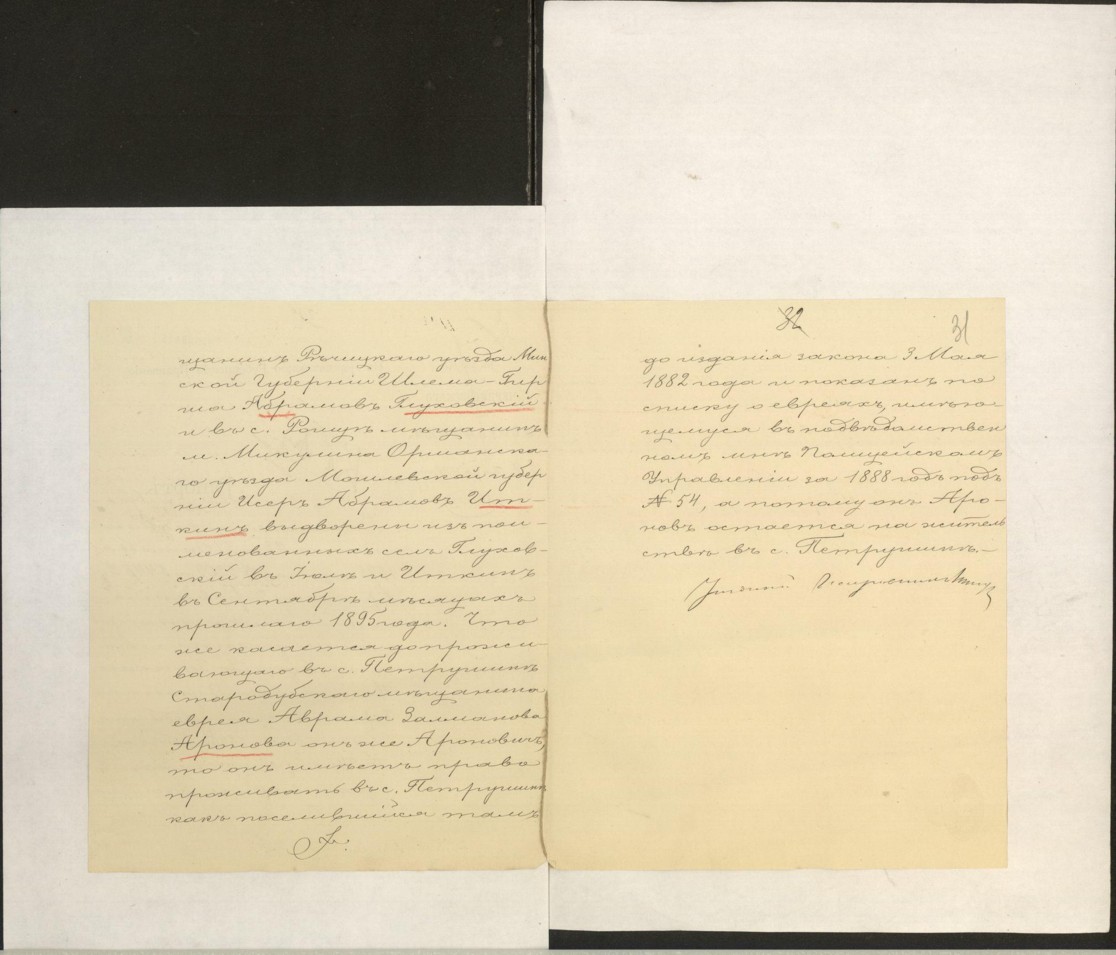 щанинъ Рѣчицкаго уѣзда Мин
ской Губерніи Шлема-Гир
ша Абрамовъ Глуховскій
и въ с. Рощѣ мѣщанинъ
м. Микулина Оршанска-
го уѣзда Могилевской губер
ніи Исеръ Абрамовъ Ит-
кинъ выдворены изъ пои-
менованныхъ селъ Глухов-
скій въ Іюлѣ и Иткинъ
въ Сентябрѣ мѣсяцахъ
прошлаго 1895 года. Что
же касается до прожи-
вающаго въ с. Петрушинѣ
Стародубскаго мѣщанина
еврея Аврама Залманова
Аронова онъ же Ароновичъ,
то онъ имѣетъ право
проживать въ с. Петрушинѣ
какъ поселившійся тамъ
32
31
до изданія закона 3 Мая
1882 года и показанъ по
списку о евреяхъ, имѣю-
щемуся въ подвѣдомствен
номъ мнѣ Полицейскомъ
Управленіи за 1888 годъ подъ
№ 54, а потому онъ Аро-
новъ остается на житель
ствѣ въ с. Петрушинѣ.-